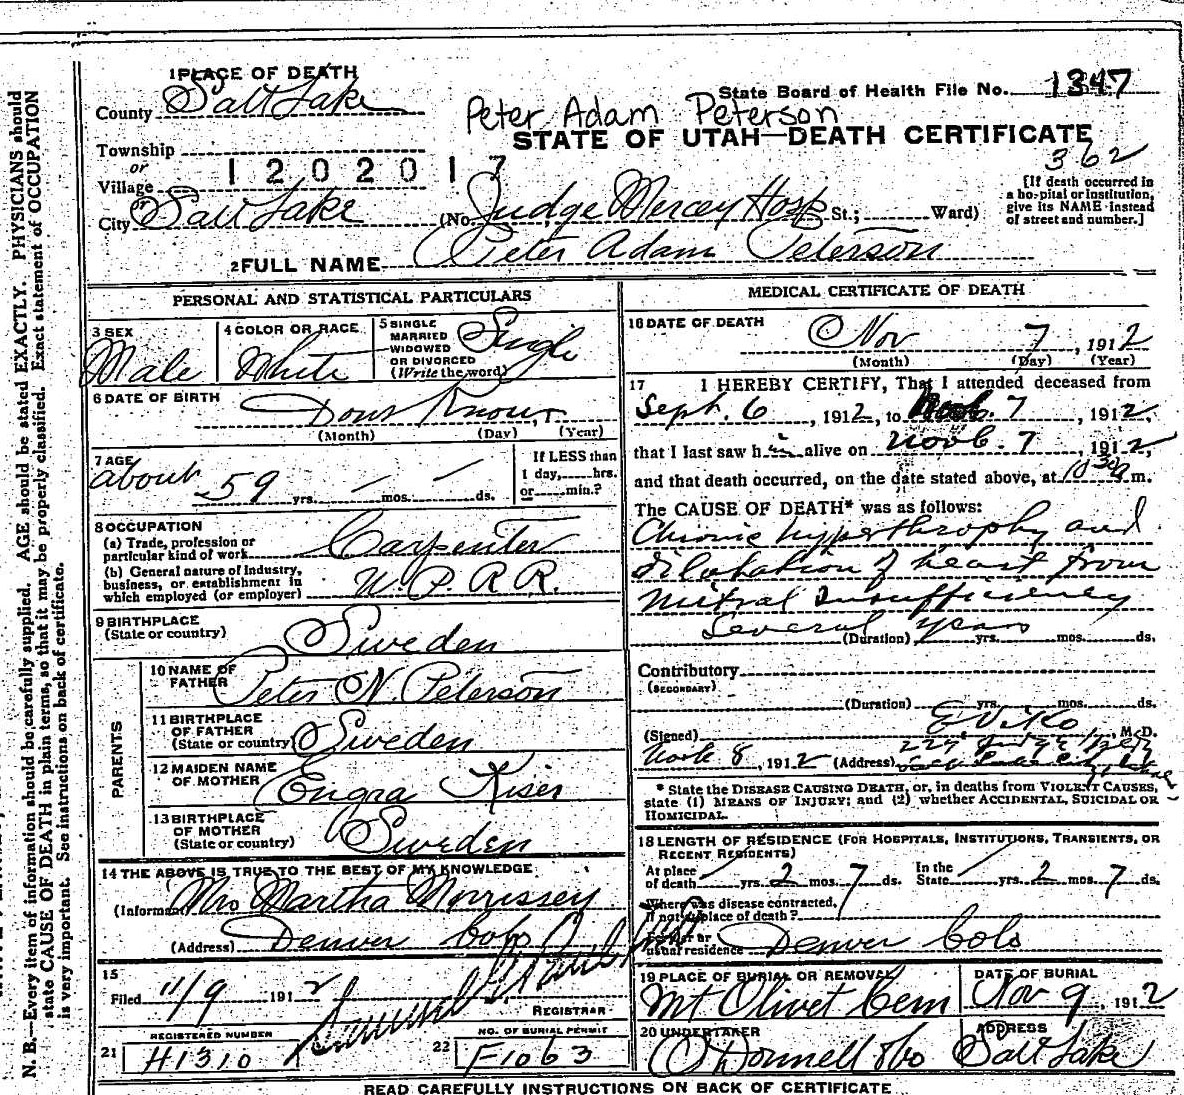 1 PLACE OF DEATH
County Salt Lake
State Board of Health File No. 1347
Peter Adam Peterson
STATE OF UTAH—DEATH CERTIFICATE
362
Township
or
Village
1202017
or
City Salt Lake (No. Judge Mercey Hosp St.; Ward)
[If death occurred in a hospital or institution, give its NAME instead of street and number.]
2 FULL NAME Peter Adam Peterson
PERSONAL AND STATISTICAL PARTICULARS
3 SEX
Male
4 COLOR OR RACE
White
5 SINGLE MARRIED WIDOWED OR DIVORCED (Write the word) Single
6 DATE OF BIRTH
Dont Know
(Month) (Day) (Year)
7 AGE
about 59 yrs. — mos. — ds.
If LESS than
1 day, hrs.
or min.?
8 OCCUPATION
(a) Trade, profession or
particular kind of work Carpenter
(b) General nature of industry,
business, or establishment in
which employed (or employer) W. P. R R.
9 BIRTHPLACE
(State or country) Sweden
PARENTS
10 NAME OF
FATHER Peter N Peterson
11 BIRTHPLACE
OF FATHER
(State or country) Sweden
12 MAIDEN NAME
OF MOTHER Engra Kiser
13 BIRTHPLACE
OF MOTHER
(State or country) Sweden
14 THE ABOVE IS TRUE TO THE BEST OF MY KNOWLEDGE
(Informant) Mrs Martha Morrissey
(Address) Denver Colo
15
Filed 11/9 1912
REGISTRAR
REGISTERED NUMBER
21 H1310
NO. OF BURIAL PERMIT
22 F1063
MEDICAL CERTIFICATE OF DEATH
16 DATE OF DEATH
Nov 7, 1912
(Month) (Day) (Year)
17 I HEREBY CERTIFY, That I attended deceased from
Sept. 6, 1912, to Novb. 7, 1912,
that I last saw him alive on Novb. 7, 1912,
and that death occurred, on the date stated above, at 10 30 a m.
The CAUSE OF DEATH* was as follows:
Chronic hyperthrophy and
dilatation of heart from
mitral insufficiency
Several years
(Duration) yrs. mos. ds.
Contributory
(SECONDARY)
(Duration) yrs. mos. ds.
(Signed) E Viko, M. D.
8, 1912 (Address) 229 Judge
* State the DISEASE CAUSING DEATH, or, in deaths from VIOLENT CAUSES,
state (1) MEANS OF INJURY; and (2) whether ACCIDENTAL, SUICIDAL OR
HOMICIDAL.
18 LENGTH OF RESIDENCE (FOR HOSPITALS, INSTITUTIONS, TRANSIENTS, OR
RECENT RESIDENTS)
At place
of death yrs. 2 mos. 7 ds. In the
State yrs. 2 mos. 7 ds.
Where was disease contracted,
if not at place of death?
Former or
usual residence Denver Colo
19 PLACE OF BURIAL OR REMOVAL
Mt Olivet Cem
DATE OF BURIAL
Nov 9, 1912
20 UNDERTAKER
O'Donnell & Co
ADDRESS
Salt Lake
READ CAREFULLY INSTRUCTIONS ON BACK OF CERTIFICATE
N. B.—Every item of information should be carefully supplied. AGE should be stated EXACTLY. PHYSICIANS should
state CAUSE OF DEATH in plain terms, so that it may be properly classified. Exact statement of OCCUPATION
is very important. See instructions on back of certificate.